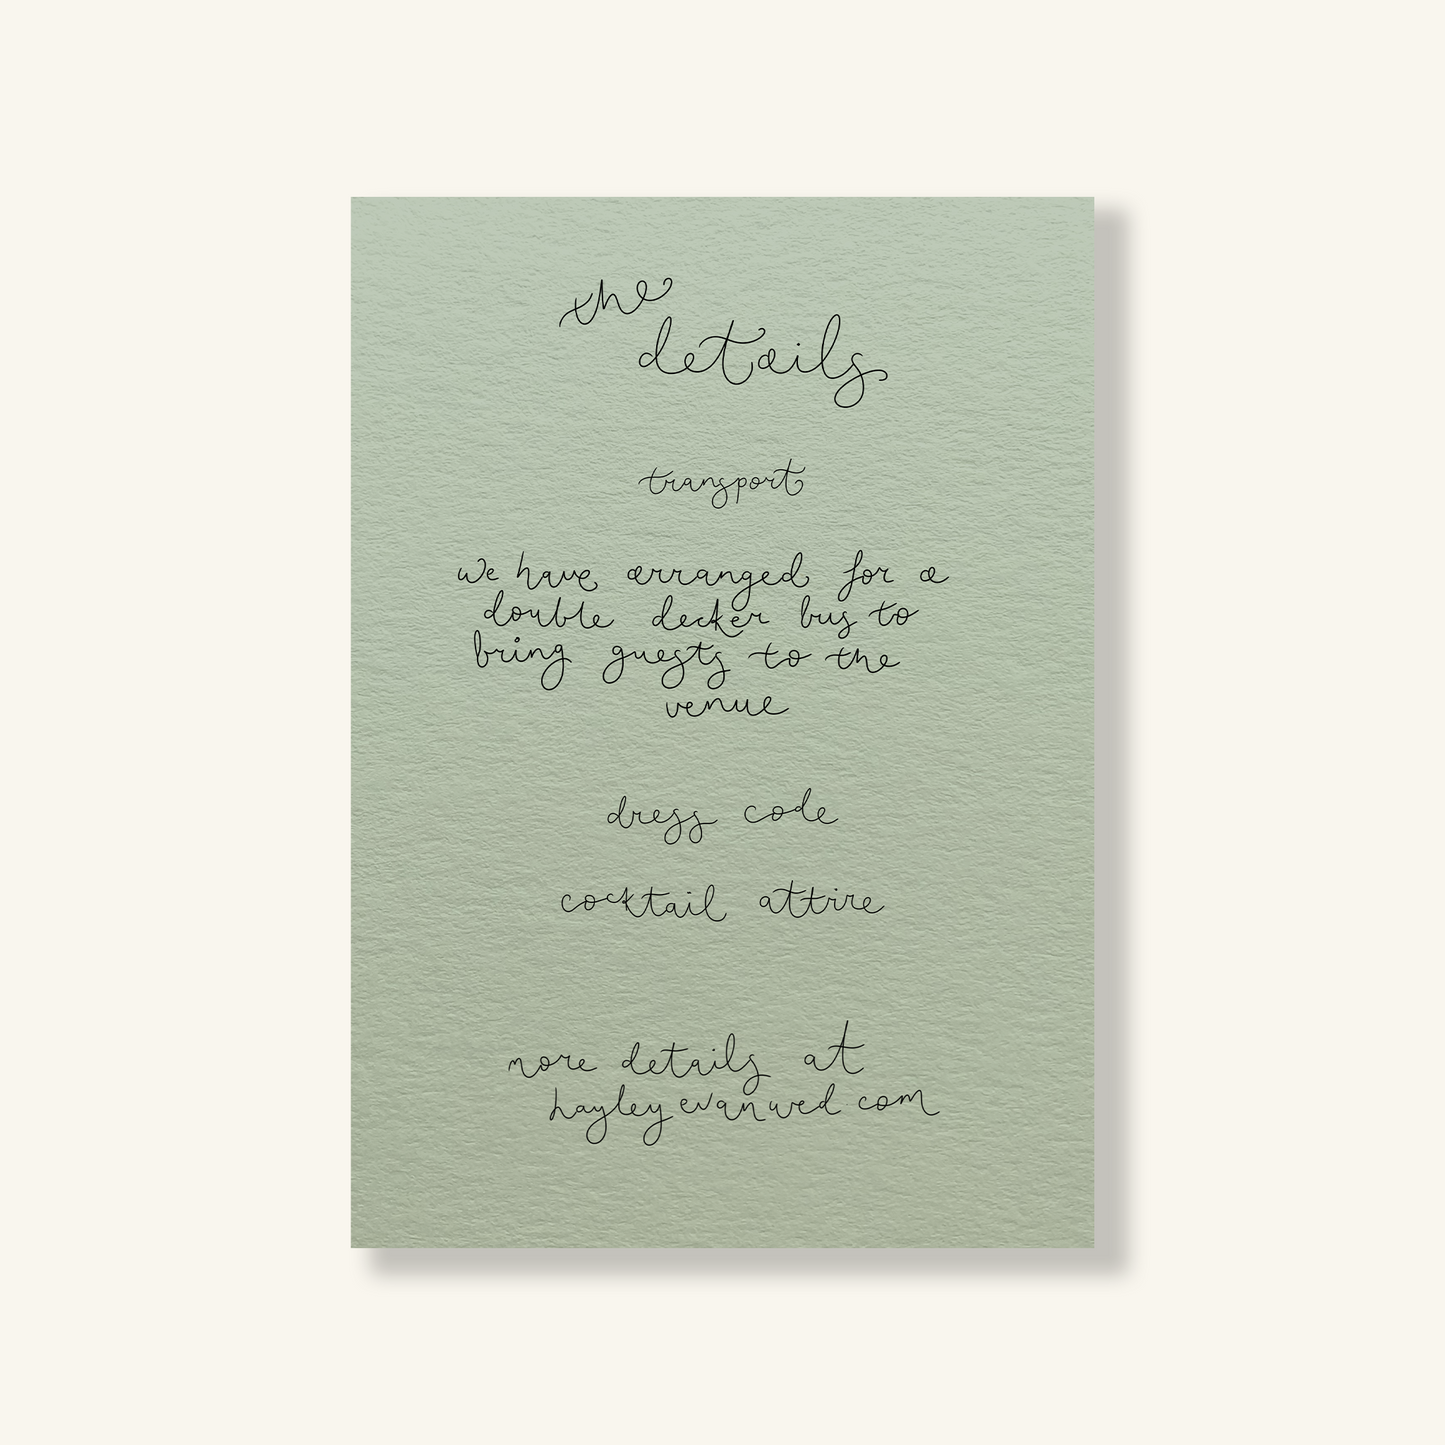 the
details
transport
we have arranged for a
double decker bus to
bring guests to the
venue
dress code
cocktail attire
more details at
hayleyevanwed com